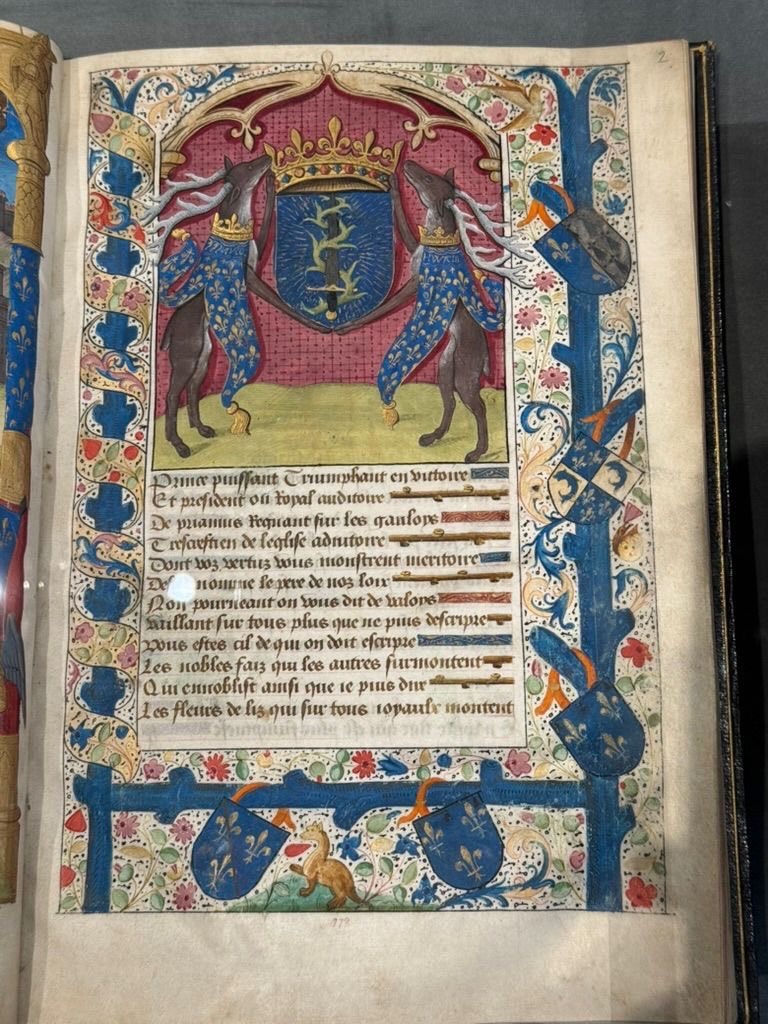 2
Prince puissant Triumphant en victoire
Et president ou Royal auditoire
De priamus Regnant sur les gauloys
Trescrestien de leglise adiutoire
Dont voz vertuz vous monstrent meritoire
nomme le pere de noz loix
Non pourneant on vous dit de valoys
vaillant sur tous plus que ne puis descripre
vous estes cil de qui on doit escripre
Les nobles faiz qui les autres surmontent
Qui ennoblist ainsi que ie puis dire
Les fleurs de liz qui sur tous montent